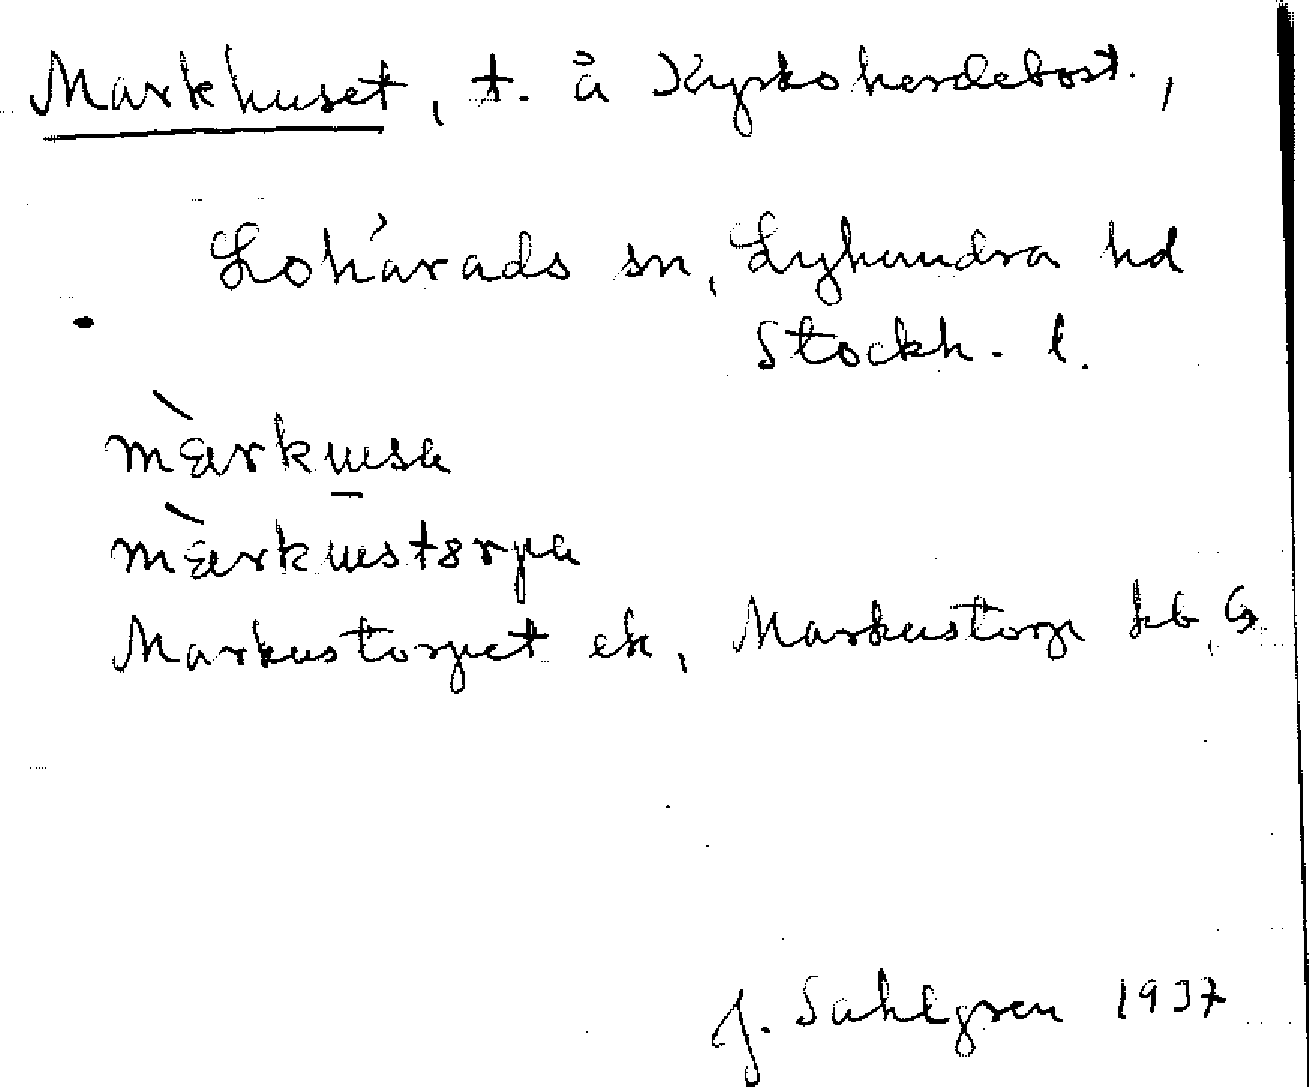 Markhuset, t. å Kyrkoherdebost.,
Lohärads sn, Lyhundra hd
Stockh. l.
märkusa
märkustorpa
Markustorpet ek, Markustorp kb, G
J. Sahlgren 1937